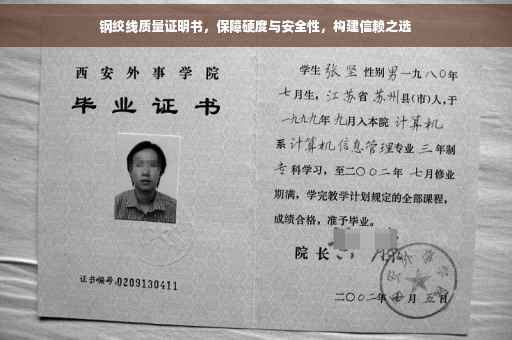 钢绞线质量证明书，保障硬度与安全性，构建信赖之选
西安外事学院
毕业证书
证书编号:0209130411
学生 张坚 性别 男 一九八〇年
七月生，江苏省 苏州县(市)人，于
一九九九年 九月入本院 计算机
系 计算机信息管理专业 三 年制
专 科学习，至二〇〇二年 七月修业
期满，学完教学计划规定的全部课程，
成绩合格，准予毕业。
院长
二〇〇二年 月 五日